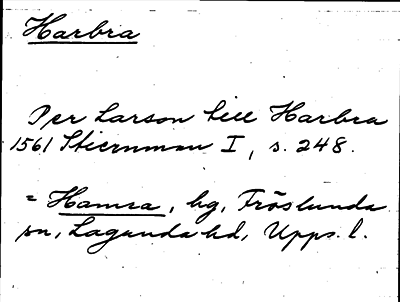 Harbra
Per Larson till Harbra
1561 Stiernman I, s. 248.
= Hamra, hg, Fröslunda
sn, Lagunda hd, Upps. l.